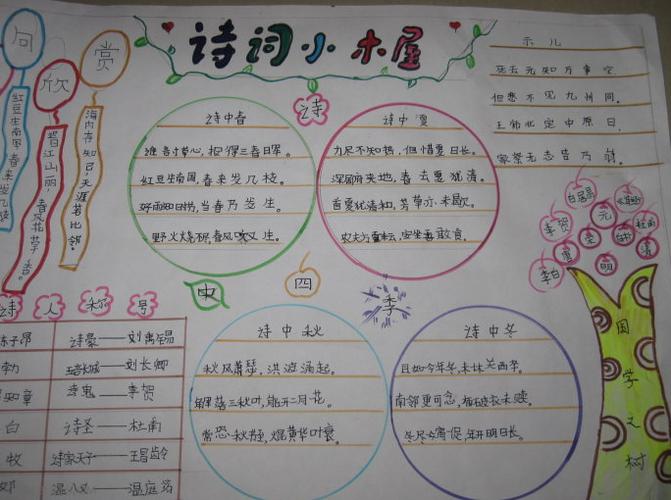 诗词小木屋
句
欣
赏
红豆生南国 春来发几枝
迟日江山丽，春风花草香。
海内存知己，天涯若比邻。
诗
诗中春
谁言寸草心，报得三春日军。
红豆生南国，春来发几枝。
好雨知时节，当春乃发生。
野火烧不尽，春风吹又生。
诗中夏
力尽不知热，但惜夏日长。
深居俯夹地，春去夏犹清。
首夏犹清和，芳草亦未歇。
示儿
死去元知万事空，
但悲不见九州同。
王师北定中原日，
家祭无忘告乃翁。
中
四
季
诗人称号
陈子昂
诗豪——刘禹锡
勃
五言长城——刘长卿
知章
诗鬼——李贺
白
诗圣——杜甫
牧
诗家天子——王昌龄
温八叉——温庭筠
诗中秋
秋风萧瑟，洪波涌起。
解落三秋叶，能开二月花。
常恐秋节至，焜黄华叶衰。
诗中冬
且如今年冬，未休关西卒。
南邻更可念，
冬尽今宵促，年开明日长。
白居易
李贺
元
杜甫
李白
唐
宋
明
清
国学之树